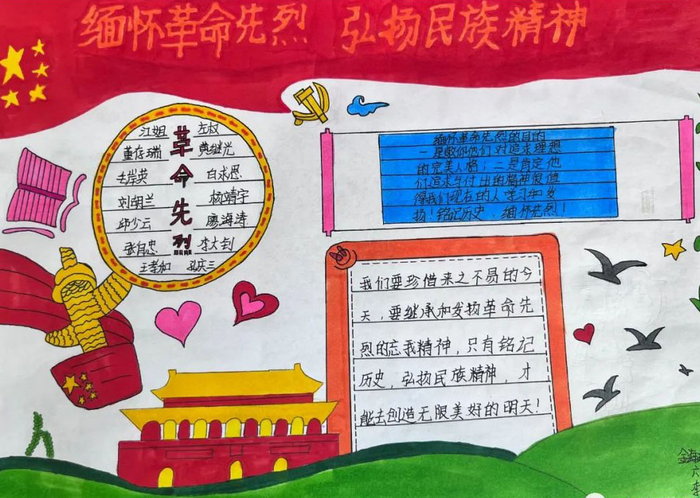 缅怀革命先烈 弘扬民族精神
革命先烈
江姐 左权
董存瑞 黄继光
毛岸英 白求恩
刘胡兰 杨靖宇
邱少云 廖海涛
张自忠 李大钊
王孝和 孔庆三
缅怀革命先烈的目的
是歌他们对追求理想
的完美人格，二是肯定他
们追求与付出的精神思想
得我们现在的人学习和发
扬！铭记历史，缅怀先烈！
我们要珍惜来之不易的今
天，要继承和发扬革命先
烈的忘我精神，只有铭记
历史，弘扬民族精神，才
能去创造无限美好的明天！